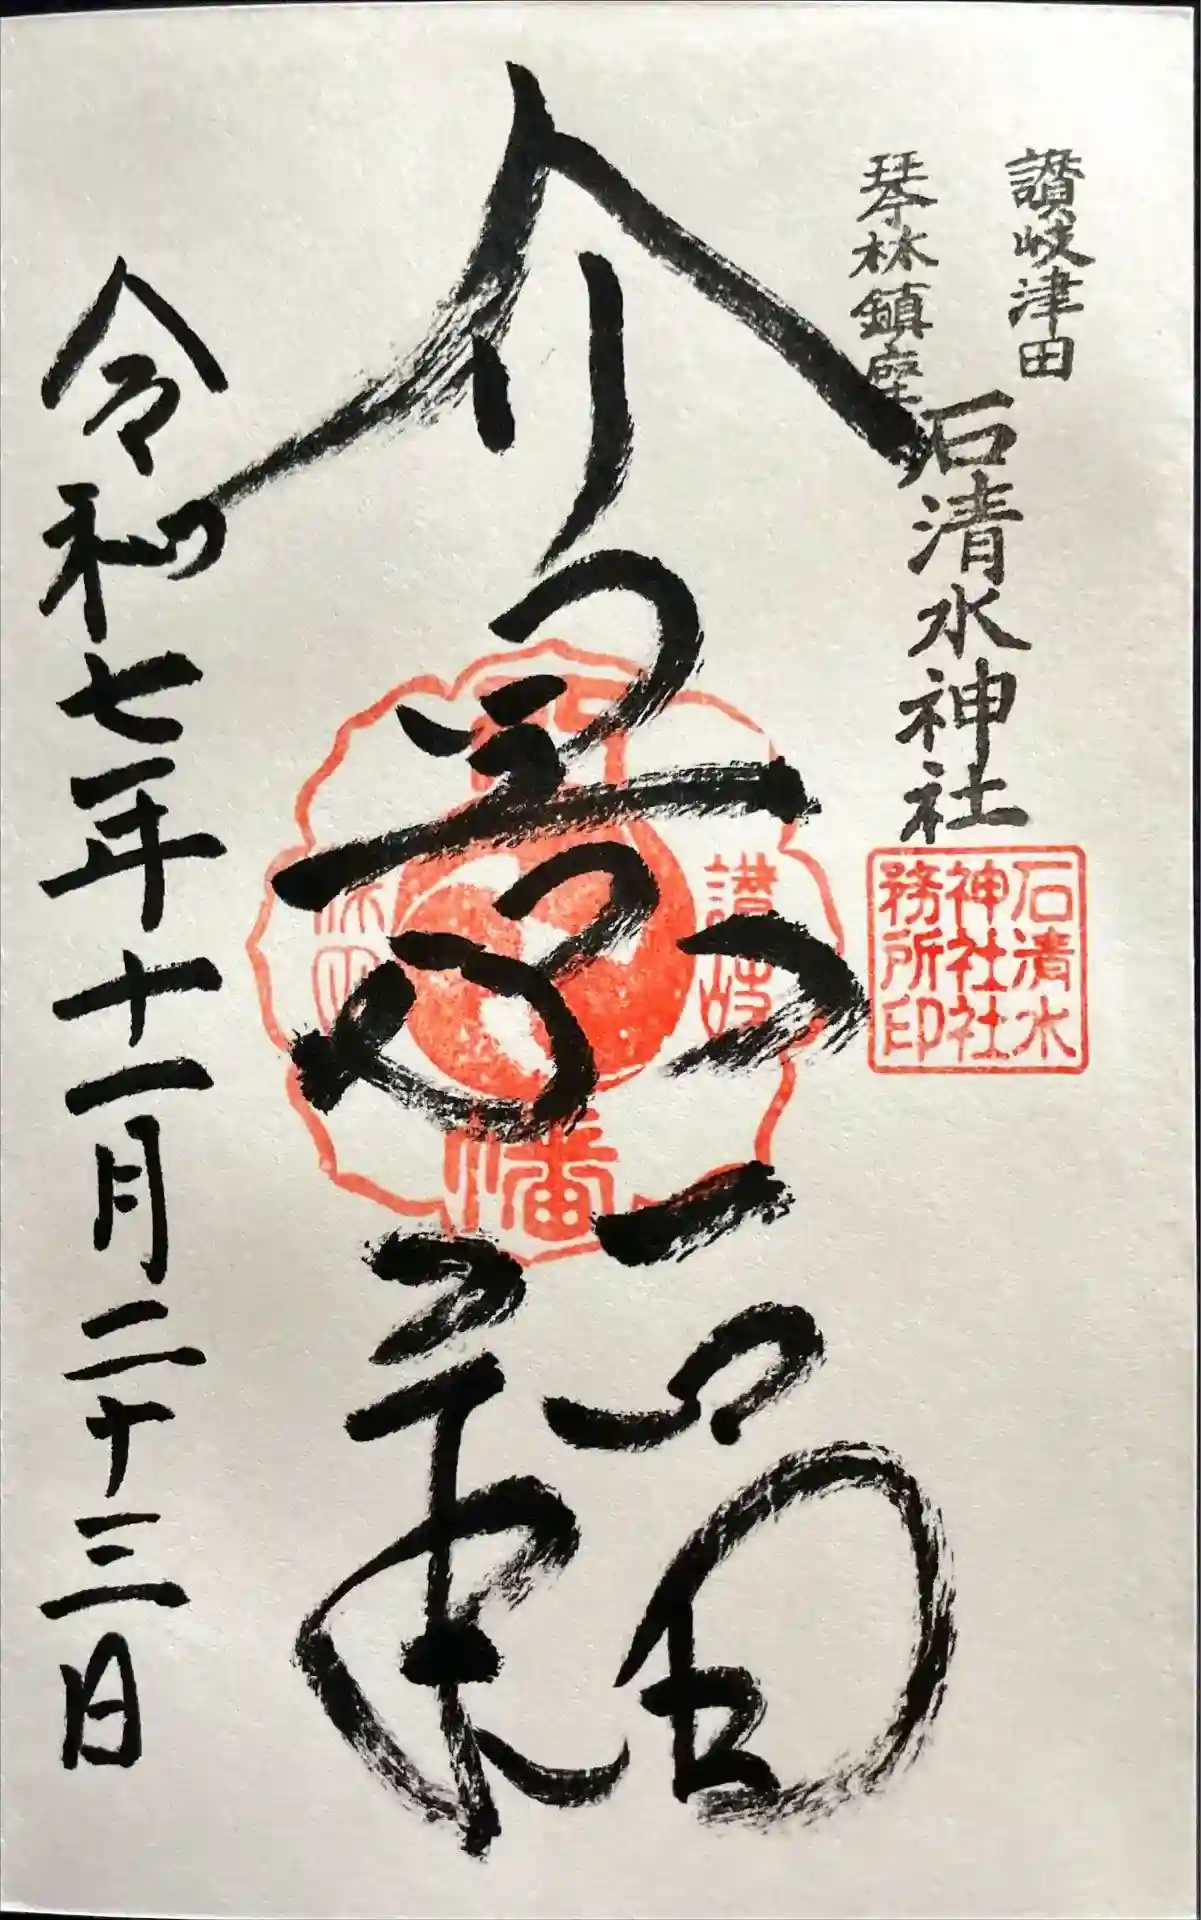 讃岐津田
琴林鎮座
石清水神社
石清水
神社社
務所印
介景福
讃岐
津田
幡
令和七年十一月二十三日